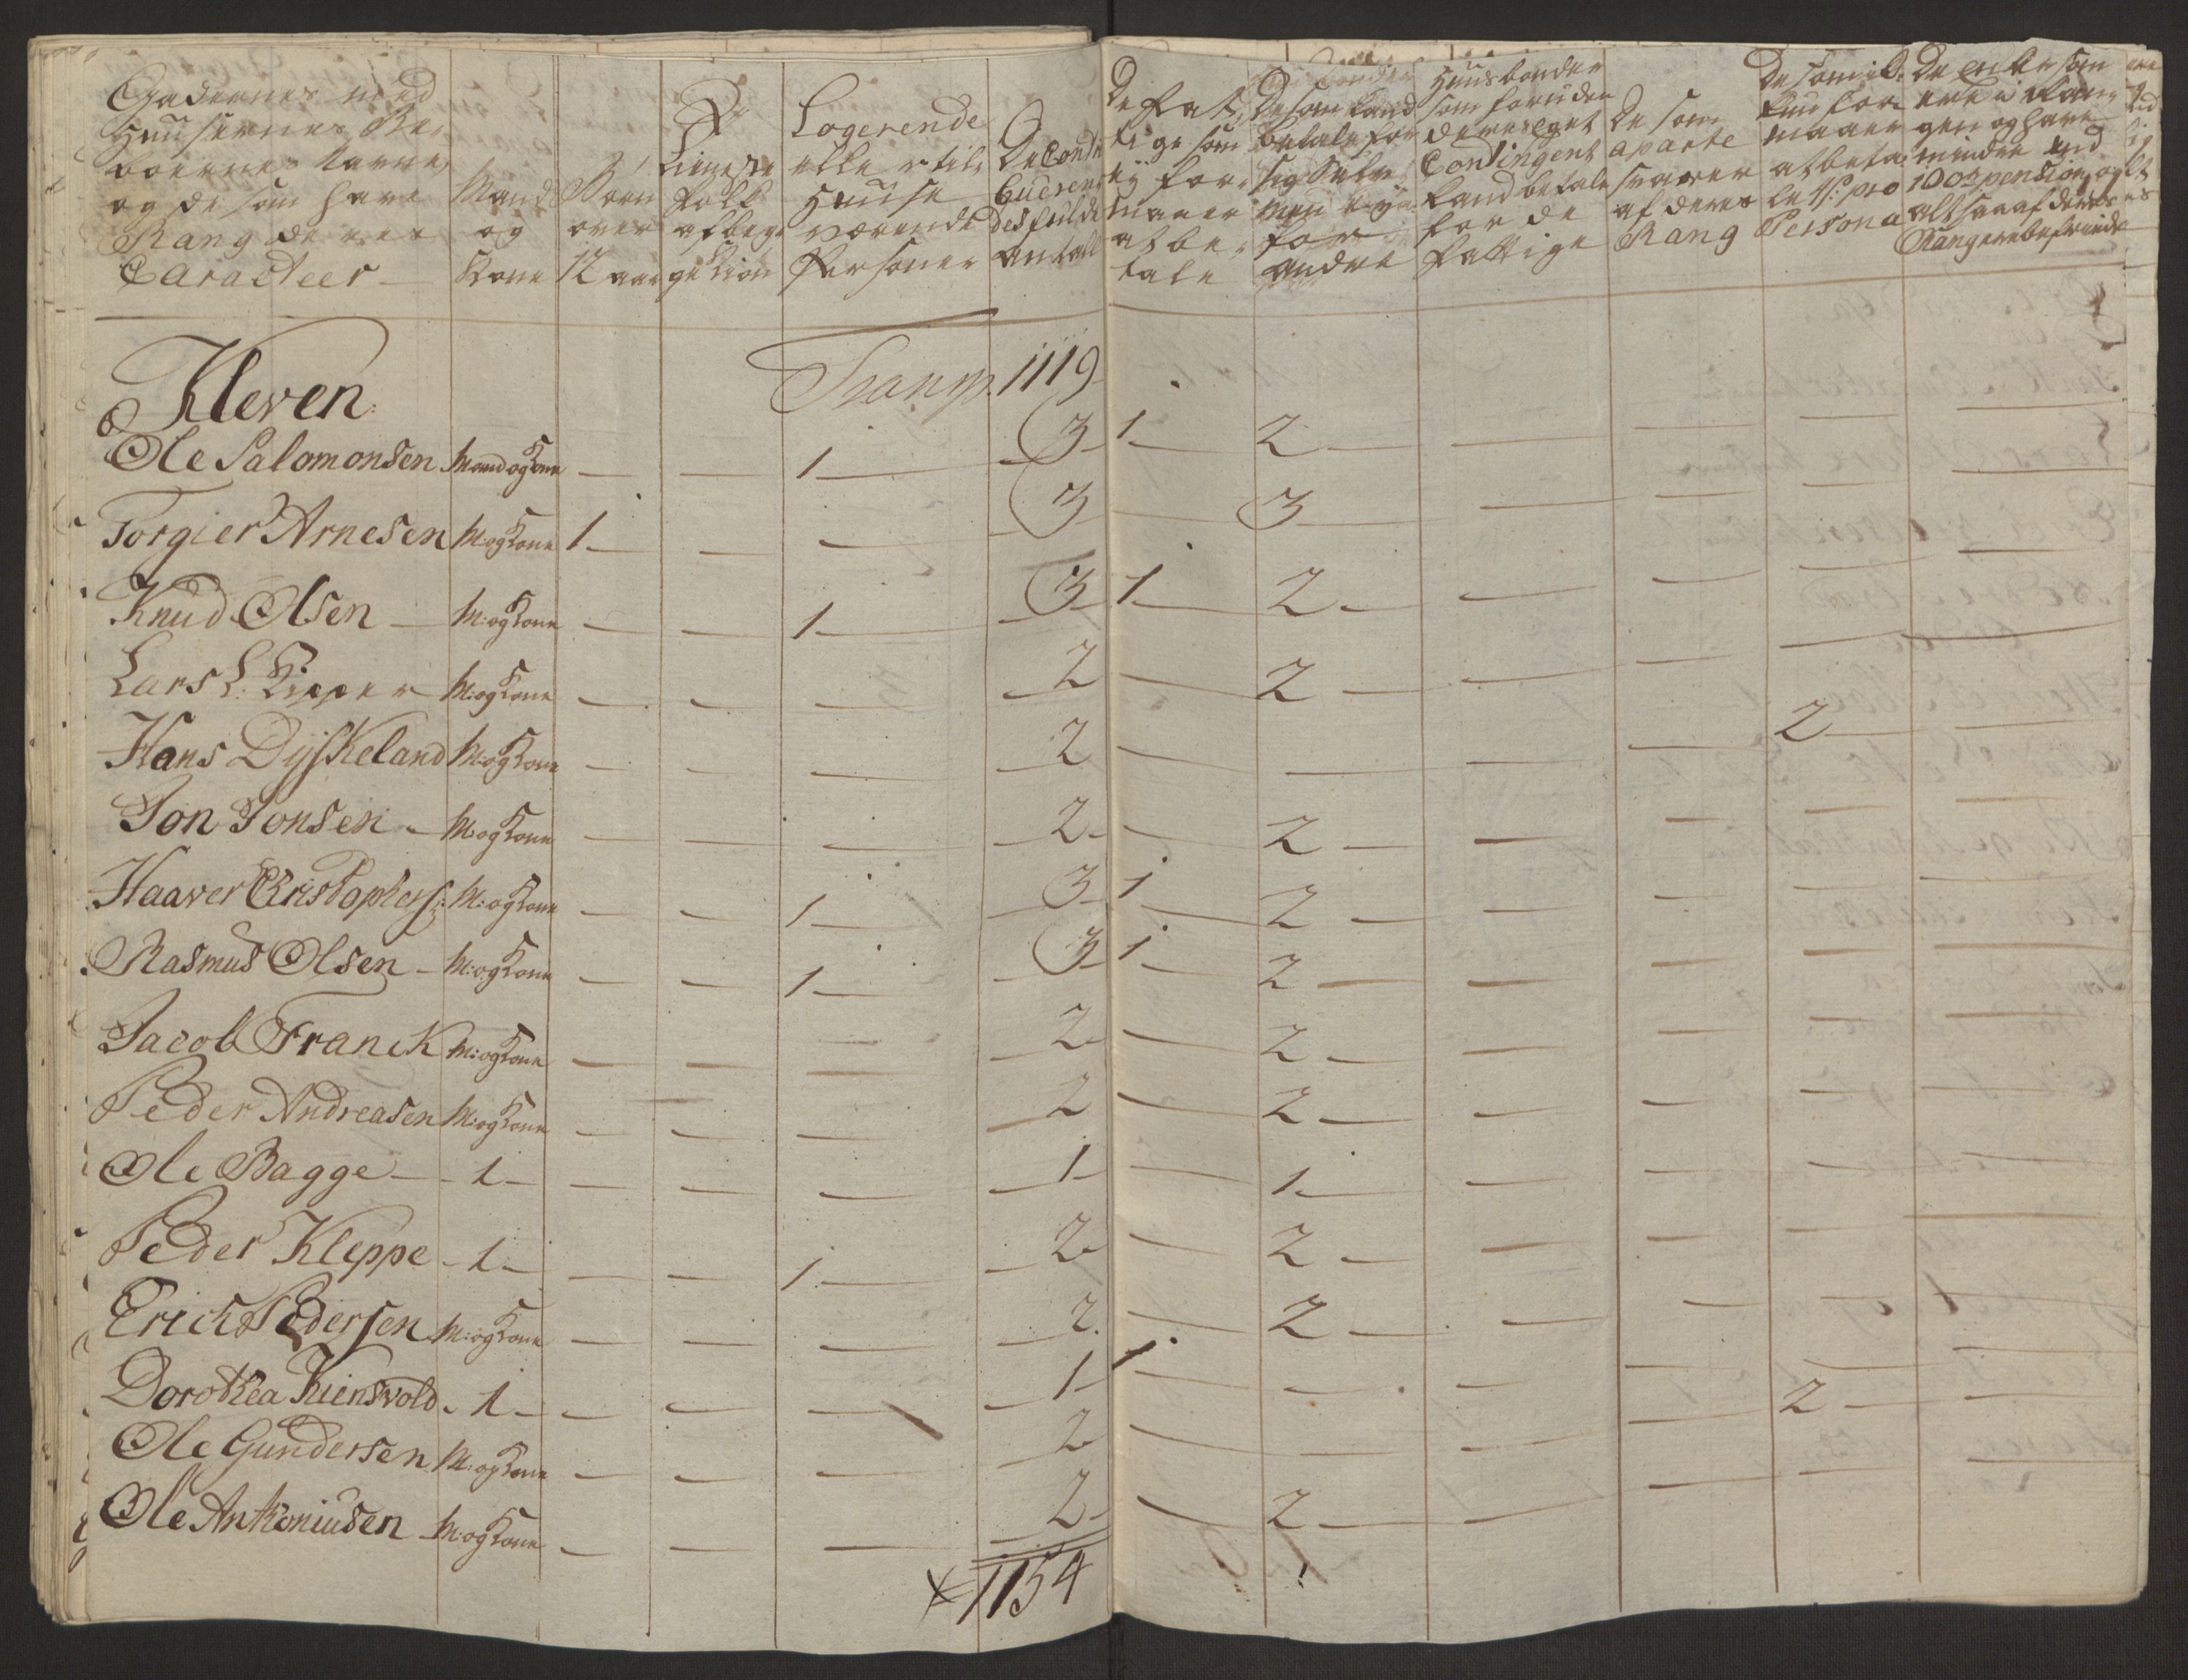 Gadernes med
Huusernes Be,
boernes Navne,
og de som have
Rang deres
Caracteer
Mand
og
Kone
Børn
over
12 aar
Tieneste
Folk
af begge
Kiøn
Logerende
eller til
Huuse
værende
Personer
De Contri
buerende
des fulde
antall
De Fat,
tige som
ej for,
maaer
at be,
tale
De som kand
betale for
sig Selv,
men ej
for
andre
Huusbonder
som foruden
deres eget
Contingent
kand betale
for de
Fattige
De som
aparte
svarer
af deres
Rang
De som ik,
kun for,
maaer
at beta,
le pro
Persona
De Enker som
ere i Ran,
gen og have
mindre end
100 pension, og
altsaa af deres
Rang ere befriede
Kleven:
Transp. 1119
Ole Salomonsen Mand og Kone — — 1 — 3 1 — 2 — — — — —
Torgier Arnesen M: og Kone 1 — — — 3 — 3 — — — — —
Knud Olsen — M: og Kone — — 1 — 3 1 — 2 — — — — —
Lars L. Kieper M: og Kone — — — 2 — 2 — — — — —
Hans Dyskeland M: og Kone — — — 2 — — — — 2 — —
Jon Jonsen — M: og Kone — — — 2 — 2 — — — — —
Haaver Christophers: M: og Kone — — 1 — 3 1 — 2 — — — — —
Rasmus Olsen — M: og Kone — — 1 — 3 1 — 2 — — — — —
Jacob Franck M: og Kone — — — 2 — 2 — — — — —
Peder Andreasen M: og Kone — — — 2 — 2 — — — — —
Ole Bagge — 1 — — — — 1 — 1 — — — — —
Peder Kleppe — 1 — — — 1 — 2 — 2 — — — — —
Erich Pedersen M: og Kone — — — 2. — 2 — — — — —
Dorothea Kiensvold — 1 — — — — 1 1 — — — — — —
Ole Gundersen M: og Kone — — — 2 — — — — 2 — —
Ole Anthoniusen M: og Kone — — — 2 — 2 — — — — —
1154